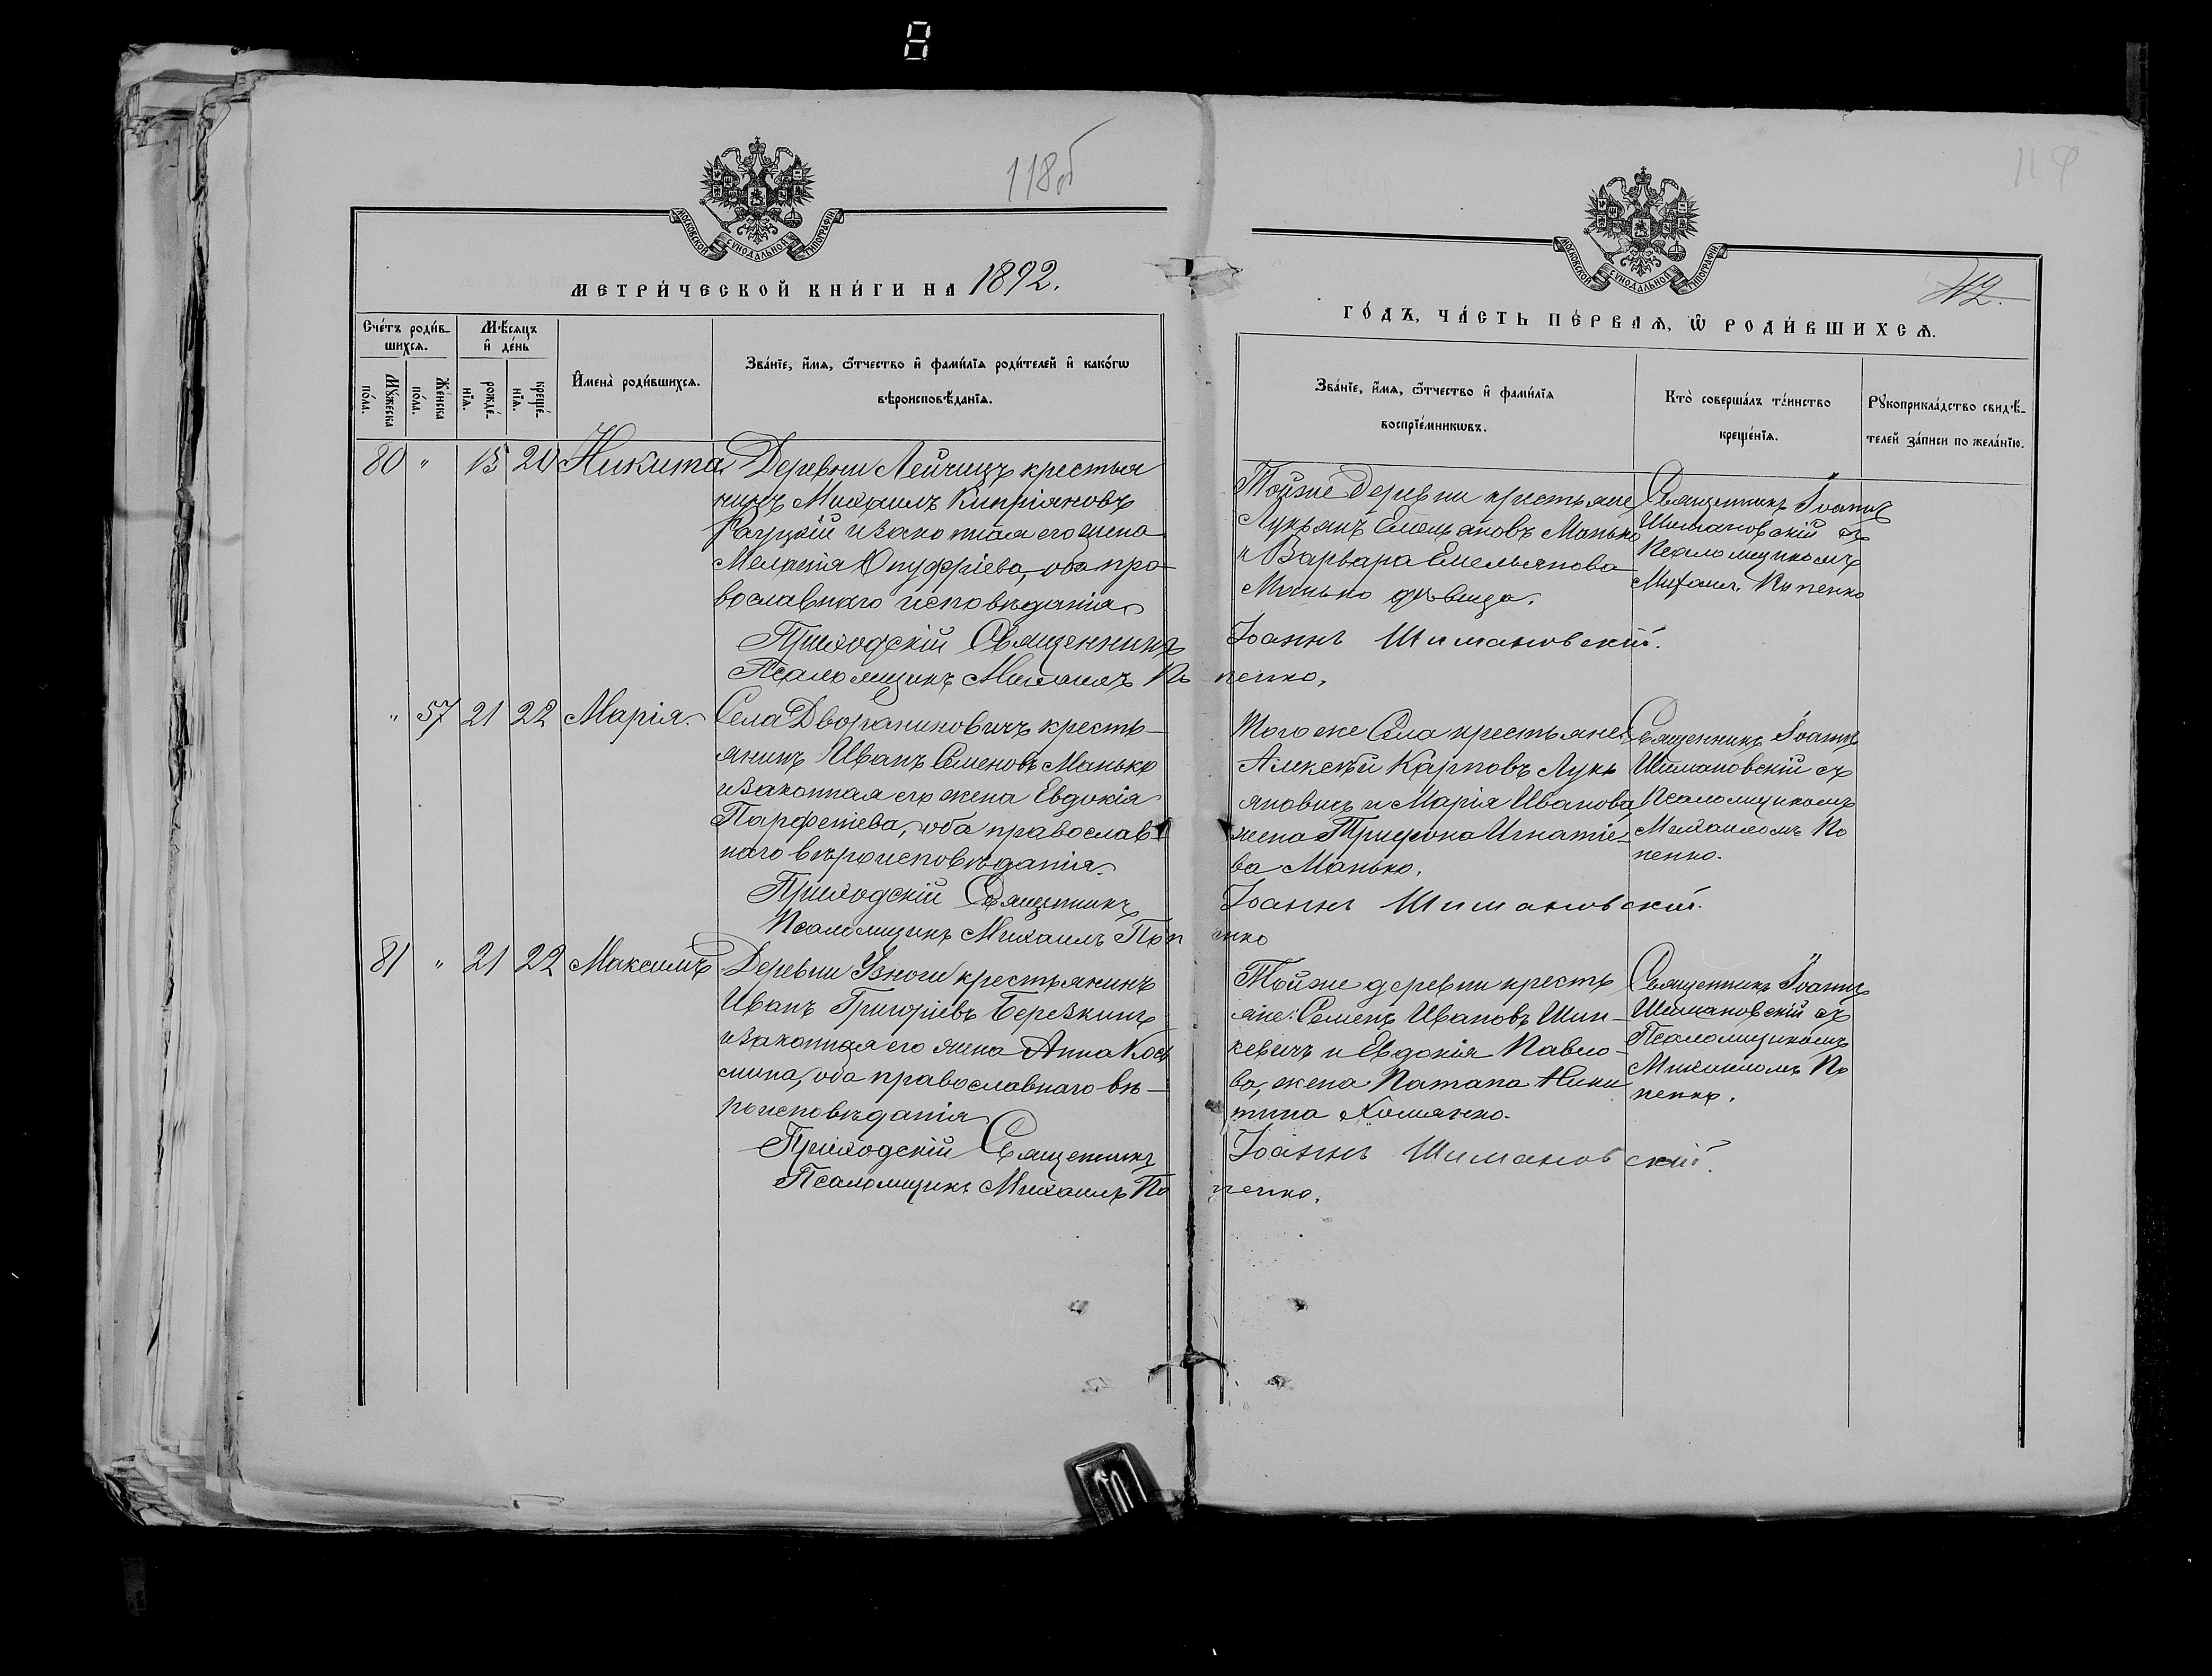 118об
МОСКОВСКОЙ СѴНОДАЛЬНОЙ ТИПОГРАФІИ
МЕТРИ́ЧЕСКОЙ КНИ́ГИ НА 1892.
Сче́тъ роди́в-
шихсѧ.
Мѣ́сѧцъ
и҆ де́нь
Мꙋ́жеска
по́ла.
Же́нска
по́ла.
рожде́-
нїѧ.
креще́-
нїѧ.
И҆мена̀ роди́вшихсѧ.
Зва́нїе, и҆́мѧ, ѻ҆́тчество и҆ фами́лїѧ роди́телей и҆ како́гѡ
вѣроисповѣ́данїѧ.
80 " 15 20 Никита. Деревни Лейчицъ крестья
нинъ Михаилъ Кипріяновъ
Рауцкій и законная его жена
Меланія Онуфріева, оба пра-
вославнаго исповѣданія
Приходскій Священникъ
Псаломщикъ Михаилъ По
" 57 21 22 Марія. Села Дворяниновичъ кресть-
янинъ Иванъ Семеновъ Манько
и законная его жена Евдокія
Парфеніева, оба православ-
наго вѣроисповѣданія.
Приходскій Священникъ
Псаломщикъ Михаилъ Поп
81 " 21 22 Максимъ Деревни Узноги крестьянинъ
Иванъ Григоріевъ Березкинъ
и законная его жена Анна Кось
мина, оба православнаго вѣ-
роисповѣданія
Приходскій Священникъ
Псаломщикъ Михаилъ По
МОСКОВСКОЙ СѴНОДАЛЬНОЙ ТИПОГРАФІИ
112.
ГО́ДЪ, ЧА́СТЬ ПЕ́РВАѦ, Ѡ҆ РОДИ́ВШИХСѦ.
Зва́нїе, и҆́мѧ, ѻ҆́тчество и҆ фами́лїѧ
воспрїе́мникѡвъ.
Кто̀ соверша́лъ та́инство
креще́нїѧ.
Рꙋкоприкла́дство свидѣ́-
телей за́писи по жела́нїю.
Тойже деревни крестьяне
Лукьянъ Емельяновъ Манько
и Варвара Емельянова
Манько дѣвица.
Священникъ Іоаннъ
Шимановскій съ
Псаломщикомъ
Михаил. Попенко
Іоаннъ Шимановскій.
пенко,
Того же Села крестьяне:
Алексѣй Карповъ Лукь
яновичъ и Марія Иванова,
жена Трифона Игнатіе-
ва Манько.
Священникъ Іоаннъ
Шимановскій съ
Псаломщикомъ
Михаиломъ По
пенко.
Іоаннъ Шимановскій.
енко
Тойже деревни кресть
яне: Семенъ Ивановъ Шин-
кевичъ и Евдокія Павло-
ва, жена Патапа Ники
тина Хомянко.
Священникъ Іоаннъ
Шимановскій съ
Псаломщикомъ
Михаиломъ По
пенко.
Іоаннъ Шимановскій.
пенко,